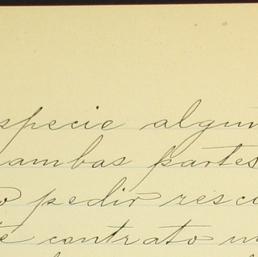 specie algun
ambas partes
o pedir resc
te contrato